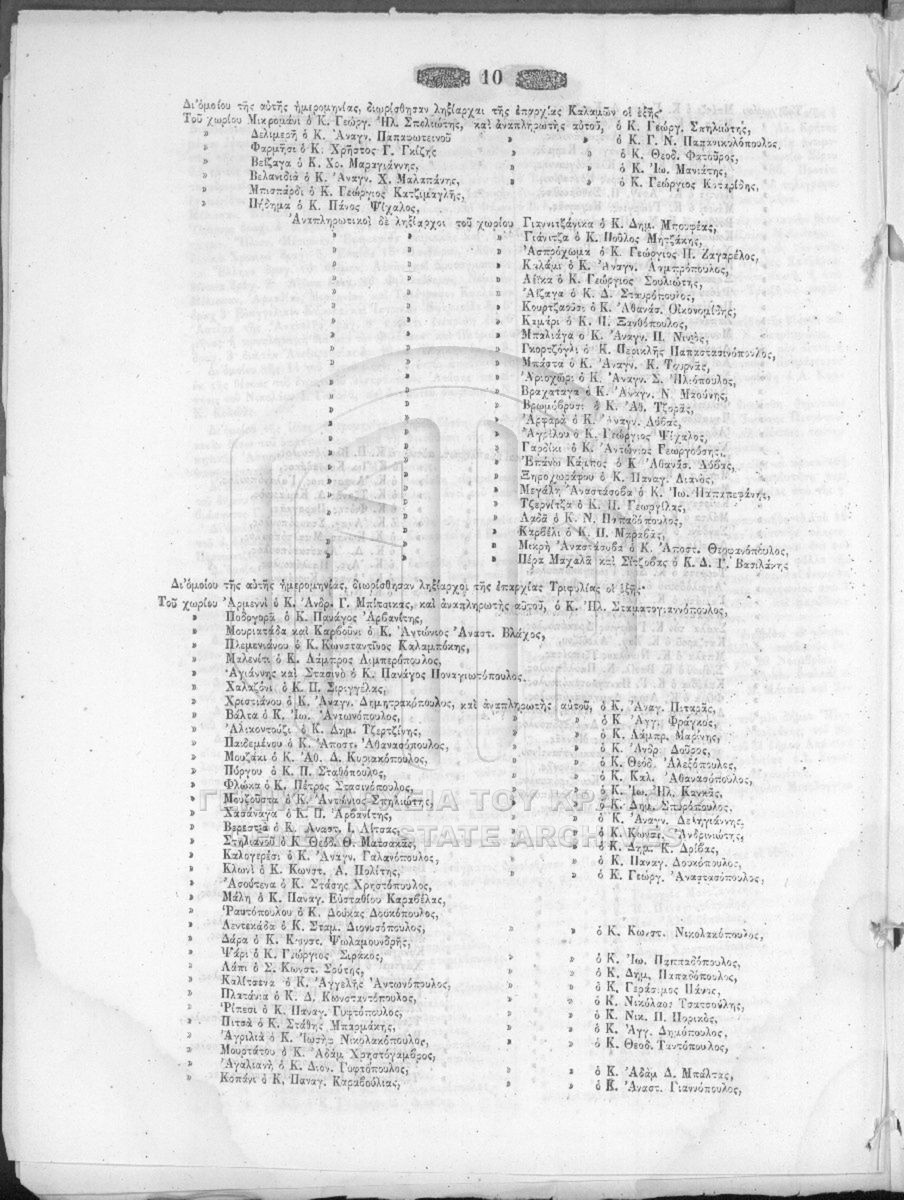 10
Δι'ὁμοίου τῆς αὐτῆς ἡμερομηνίας, διωρίσθησαν ληξίαρχαι τῆς ἐπαρχίας Καλαμῶν οἱ ἑξῆς·
Τοῦ χωρίου Μικρομάνι ὁ Κ. Γεώργ. Ἠλ. Σπηλιώτης, καὶ ἀναπληρωτὴς αὐτοῦ, ὁ Κ. Γεώργ. Σπηλιώτης,
» Δελιμεμῆ ὁ Κ. Ἀναγν. Παπαφωτεινοῦ » » ὁ Κ. Γ. Ν. Παπανικολόπουλος,
» Φαρμῆσι ὁ Κ. Χρῆστος Γ. Γκίζης » » ὁ Κ. Θεοδ. Φατοῦρος,
» Βεΐζαγα ὁ Κ. Χρ. Μαραγιάννης, » » ὁ Κ. Ἰω. Μανιάτης,
» Βελανιδιὰ ὁ Κ. Ἀναγν. Χ. Μαλαπάνης, » » ὁ Κ. Γεώργιος Κυταρίδης,
» Μπισπάρδι ὁ Κ. Γεώργιος Κατζιμαγλῆς,
» Πήδημα ὁ Κ. Πάνος Ψίχαλος,
Ἀναπληρωτικοὶ δὲ ληξίαρχοι τοῦ χωρίου Γιαννιτζάνικα ὁ Κ. Δημ. Μπουφέας,
» » » Γιάνιτζα ὁ Κ. Ποῦλος Μητζάκης,
» » » Ἀσπρόχωμα ὁ Κ. Γεώργιος Π. Ζαγαρέλος,
» » » Καλάμι ὁ Κ. Ἀναγν. Λαμπρόπουλος,
» » » Λέϊκα ὁ Κ. Γεώργιος Σουλιώτης,
» » » Ἀΐζαγα ὁ Κ. Δ. Σταυρόπουλος,
» » » Κουρτζαοῦσι ὁ Κ. Ἀθανάσ. Οἰκονομίδης,
» » » Καμάρι ὁ Κ. Π. Ξανθόπουλος,
» » » Μπαλιάγα ὁ Κ. Ἀναγν. Π. Νινιός,
» » » Γκορτζόγλι ὁ Κ. Περικλῆς Παπαστασινόπουλος,
» » » Μπάστα ὁ Κ. Ἀναγν. Κ. Τουρνᾶς,
» » » Ἀριοχῶρι ὁ Κ. Ἀναγν. Σ. Ἠλιόπουλος,
» » » Βραχάταγα ὁ Κ. Ἀναγν. Ν. Μαούνης,
» » » Βρωμόβρυσι ὁ Κ. Ἀθ. Τζορᾶς,
» » » Ἀρφαρὰ ὁ Κ. Ἀναγν. Λύβας,
» » » Ἀγρίλου ὁ Κ. Γεώργιος Ψίχαλος,
» » » Γαρδίκι ὁ Κ. Ἀντώνιος Γεωργούσης,
» » » Ἐπάνω Κάμπος ὁ Κ. Ἀθανάσ. Λύβας,
» » » Ξηροχωράφου ὁ Κ. Παναγ. Λιανὸς,
» » » Μεγάλη Ἀναστάσοβα ὁ Κ. Ἰω. Παπαπεφάνης,
» » » Τζερνίτζα ὁ Κ. Π. Γεωργίλας,
» » » Λαδᾶ ὁ Κ. Ν. Παπαδόπουλος,
» » » Καρβέλι ὁ Κ. Π. Μαραβᾶς,
» » » Μικρὴ Ἀναστάσοβα ὁ Κ. Ἀποστ. Θεοφανόπουλος,
» » » Πέρα Μαχαλᾶ καὶ Σίτζοβας ὁ Κ. Δ. Γ. Βασιλάκης
Δι'ὁμοίου τῆς αὐτῆς ἡμερομηνίας, διωρίσθησαν ληξίαρχοι τῆς ἐπαρχίας Τριφυλίας οἱ ἑξῆς·
Τοῦ χωρίου Ἀρμενιὶ ὁ Κ. Ἀνδρ. Γ. Μπίτσικας, καὶ ἀναπληρωτὴς αὐτοῦ, ὁ Κ. Ἠλ. Σταματογιαννόπουλος,
» Ποδογορὰ ὁ Κ. Πανάγος Ἀρβανίτης,
» Μουριατάδα καὶ Καρβοῦνι ὁ Κ. Ἀντώνιος Ἀναστ. Βλάχος,
» Πλεμενιάνου ὁ Κ. Κωνσταντῖνος Καλαμπόκης,
» Μαλενίτι ὁ Κ. Λάμπρος Λιμπερόπουλος,
» Ἁγιάννης καὶ Στασινὸ ὁ Κ. Πανάγος Παναγιωτόπουλος,
» Χαλαζόνι ὁ Κ. Π. Σιριγγέλας,
» Χριστιάνου ὁ Κ. Ἀναγν. Δημητρακόπουλος, καὶ ἀναπληρωτὴς αὐτοῦ, ὁ Κ. Ἀναγ. Πιταρᾶς,
» Βάλτα ὁ Κ. Ἰω. Ἀντωνόπουλος, » » ὁ Κ. Ἀγγ. Φράγκος,
» Ἀλικοντοῦζι ὁ Κ. Δημ. Τζερτζίνης, » » ὁ Κ. Λάμπρ. Μαρίνης,
» Παιδεμένου ὁ Κ. Ἀποστ. Ἀθανασόπουλος, » » ὁ Κ. Ἀνδρ. Δοῦρος,
» Μουζάκι ὁ Κ. Ἀθ. Δ. Κυριακόπουλος, » » ὁ Κ. Θεόδ. Ἀλεξόπουλος,
» Πύργου ὁ Κ. Π. Σταθόπουλος, » » ὁ Κ. Καλ. Ἀθανασόπουλος,
» Φλώκα ὁ Κ. Πέτρος Στασινόπουλος, » » ὁ Κ. Ἰω. Ἠλ. Κανκᾶς,
» Μουζοῦστα ὁ Κ. Ἀντώνιος Σπηλιώτης, » » ὁ Κ. Δημ. Σπυρόπουλος,
» Χασάναγα ὁ Κ. Π. Ἀρβανίτης, » » ὁ Κ. Ἀναγν. Δεληγιάννης,
» Βερεστιὰ ὁ Κ. Ἀναστ. Ι. Λίτσας, » » ὁ Κ. Κωνσ. Ἀνδρινιώτης,
» Στηλιάνου ὁ Κ. Θεόδ. Θ. Ματσακᾶς, » » ὁ Κ. Δημ. Κ. Δρίβας,
» Καλογερέσι ὁ Κ. Ἀναγν. Γαλανόπουλος, » » ὁ Κ. Παναγ. Δουκόπουλος,
» Κλωνὶ ὁ Κ. Κωνστ. Α. Πολίτης, » » ὁ Κ. Γεώργ. Ἀναστασόπουλος,
» Ἀσούτενα ὁ Κ. Στάσης Χρηστόπουλος,
» Μάλη ὁ Κ. Παναγ. Εὐσταθίου Καραβέλας,
» Ῥαυτόπουλου ὁ Κ. Δούκας Δουκόπουλος,
» Λεντεκάδα ὁ Κ. Σταμ. Διονυσόπουλος, » » ὁ Κ. Κωνστ. Νικολακόπουλος,
» Δάρα ὁ Κ. Κωνστ. Ψωλαμουνδρῆς,
» Ψάρι ὁ Κ. Γεώργιος Σιράκος, » » ὁ Κ. Ἰω. Παππαδόπουλος,
» Λάπι ὁ Σ. Κωνστ. Σούτης, » » ὁ Κ. Δημ. Παπαδόπουλος,
» Καλίτσενα ὁ Κ. Ἀγγελῆς Ἀντωνόπουλος, » » ὁ Κ. Γεράσιμος Πάνος,
» Πλατάνια ὁ Κ. Δ. Κωνσταντόπουλος, » » ὁ Κ. Νικόλαος Τσατσούλης,
» Ῥίπεσι ὁ Κ. Παναγ. Γυφτόπουλος, » » ὁ Κ. Νικ. Π. Πορικὸς,
» Πιτσὰ ὁ Κ. Στάθης Μπαρμάκης, » » ὁ Κ. Ἀγγ. Δημόπουλος,
» Ἀγριλιὰ ὁ Κ. Ἰωσὴφ Νικολακόπουλος, » » ὁ Κ. Θεοδ. Ταντόπουλος,
» Μουρτάτου ὁ Κ. Ἀδὰμ Χρηστόγαμβρος,
» Ἀγαλιανὴ ὁ Κ. Διον. Γυφτόπουλος, » » ὁ Κ. Ἀδὰμ Δ. Μπάλτας,
» Κοπάνι ὁ Κ. Παναγ. Καραβούλιας, » » ὁ Κ. Ἀναστ. Γιαννόπουλος,
ΓΕΝΙΚΑ ΑΡΧΕΙΑ ΤΟΥ ΚΡΑ
STATE ARCHIVES